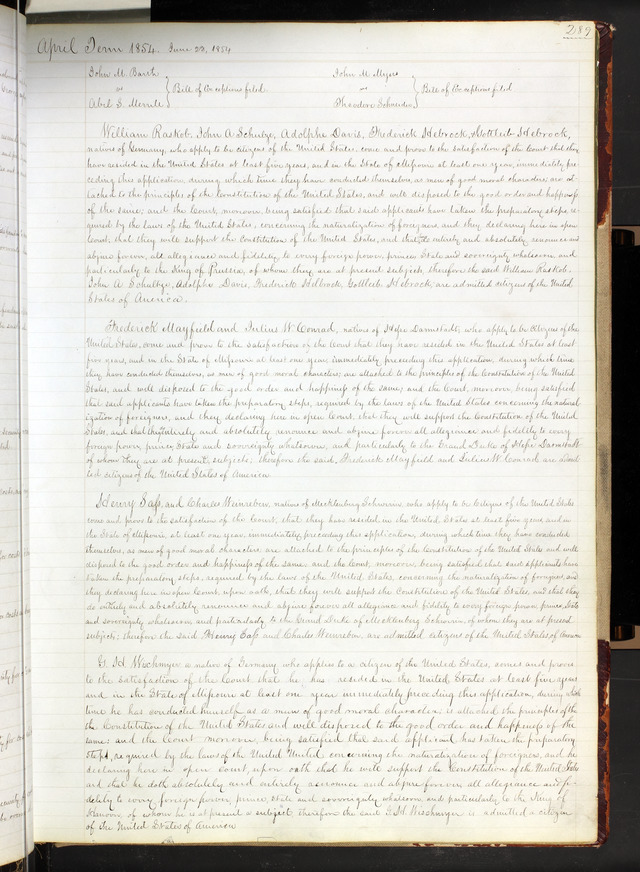 289
April Term 1854. June 23, 1854
John M. Barth
vs } Bill of Exceptions filed
Abel S. Merrill
John M Myers
vs } Bill of Exceptions filed
Theodore Schneider
William Raskob, John A Schultze, Adolphe Davis, Frederick Hebrock, Gottleib Hebrock,
natives of Germany, who apply to be citizens of the United States, come and prove to the satisfaction of the Court that they
have resided in the United States at least five years, and in the State of Missouri at least one year, immediately pre-
ceding this application, during which time they have conducted themselves, as men of good moral characters are at-
tached to the principles of the Constitution of the United States, and well disposed to the good order and happiness
of the same; and the Court, moreover, being satisfied that said applicants have taken the preparatory steps, re-
quired by the laws of the United States, concerning the naturalization of foreigners and they declaring here in open
Court, that they will support the Constitution of the United States, and that do entirely and absolutely, renounce and
abjure forever, all allegiance and fidelity, to every foreign power, prince, State and sovereignty whatsoever, and
particularly to the King of Prussia, of whom they are at present subjects, therefore the said William Raskob,
John A Schultze, Adolphe Davis, Frederick Helbrock, Gottleib Hebrock, are admitted citizens of the United
States of America.
Frederick Mayfield and Julius W. Conrad, natives of Hesse Darmstadt, who apply to be Citizens of the
United States, come and prove to the satisfaction of the Court that they have resided in the United States at least
five years, and in the State of Missouri at least one year, immediately preceding this application, during which time
they have conducted themselves, as men of good moral characters, are attached to the principles of the Constitution of the United
States, and well disposed to the good order and happiness of the same; and the Court, moreover, being satisfied
that said applicants have taken the preparatory steps, required by the laws of the United States concerning the natural-
ization of foreigners, and they declaring here in open Court, that they will support the Constitution of the United
States, and that they entirely and absolutely renounce and abjure forever all allegiance and fidelity to every
foreign power, prince, State and sovereignty whatsoever, and particularly to the Grand Duke of Hesse Darmstadt
of whom they are at present subjects, therefore the said, Frederick Mayfield and Julius W. Conrad are admit-
ted citizens of the United States of America
Henry Sass, and Charles Weinreben, natives of Mecklenburg Schwerin, who apply to be Citizens of the United States
come and prove to the satisfaction of the Court, that they have resided in the United States at least five years, and in
the State of Missouri, at least one year, immediately preceding this application, during which time they have conducted
themselves, as men of good moral characters, are attached to the principles of the Constitution of the United States and well
disposed to the good order and happiness of the same, and the Court, moreover, being satisfied that said applicants have
taken the preparatory steps, required by the laws of the United States, concerning the naturalization of foreigners, and
they declaring here in open Court, upon oath, that they will support the Constitution of the United States, and that they
do entirely and absolutely renounce and abjure forever all allegiance and fidelity to every foreign power, prince, State
and sovereignty whatsoever and particularly to the Grand Duke of Mecklenburg Schwerin, of whom they are at present
subjects; therefore the said Henry Sass and Charles Weinreben, are admitted citizens of the United States of America
G. H Wischmyer a native of Germany who applies to a citizen of the United States, comes and proves
to the satisfaction of the Court that he has resided in the United States at least five years
and in the State of Missouri at least one year immediately preceding this application, during which
time he has conducted himself as a man of good moral character; is attached the principles of the
the Constitution of the United States and well disposed to the good order and happiness of the
same; and the Court moreover being satisfied that said applicant has taken the preparatory
steps, required by the laws of the United United, concerning the naturalization of foreigners, and he
declaring here in open Court, upon oath that he will support the Constitution of the United States
and that he doth absolutely and entirely renounce and abjure forever all allegiance and fi-
delity to every foreign power, prince, State and sovereignty whatsoever and particularly to the King of
Hanover, of whom he is at present a subject therefore the said G. H Wischmyer is admitted a citizen
of the United States of America